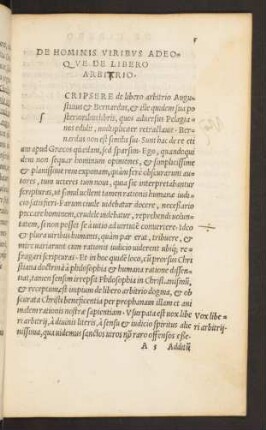 DE HOMINIS VIRIBVS ADEO-
QVE DE LIBERO
ARBITRIO.
CRIPSERE de libero arbitrio Augu-
stinus & Bernardus, & ille quidem sua po
sterioribus libris, quos aduersus Pelagia-
nos edidit, multipliciter retractauit. Ber-
nardus non est similis sui. Sunt hac de re et-
iam apud Græcos quædam, sed sparsim. Ego, quandoqui
dem non sequar hominum opiniones, & simplicissime
& planissime rem exponam, quam ferè obscurarunt au-
tores, tum ueteres tum noui, quia sic interpretabantur
scripturas, ut simul uellent tamen rationis humanæ iudi
cio satisfacere. Parum ciuile uidebatur docere, necessario
peccare hominem, crudele uidebatur, reprehendi uolun-
tatem, si non posset se à uitio ad uirtutem conuertere. Ideo
& plura uiribus humanis, quàm par erat, tribuere, &
mire uariarunt cum rationis iudicio uiderent ubique re-
fragari scripturas. Et in hoc quidē loco, cū prorsus Chri
stiana doctrina à philosophia & humana ratione dissen-
tiat, tamen sensim irrepsit Philosophia in Christianismū,
& receptum est impium de libero arbitrio dogma, & ob
scurata Christi beneficentia per prophanam illam et ani
malem rationis nostræ sapientiam. Vsurpata est uox libe
Vox libe
ri arbitrij, à diuinis literis, à sensu & iudicio spiritus alie
ri arbitrij.
nissima, qua uidemus sanctos uiros nō raro offensos esse.
A 5 Additū